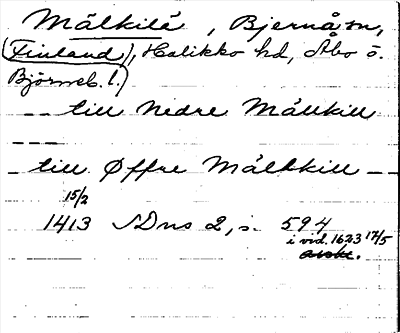 Målkilä, Bjernå sn,
(Finland), Halikko hd, Åbo o.
Björneb. l.)
-- till Nedre Mållkill
-- till Øffre Målkkill --
15/2
1413 SDns 2, s. 594
i vid. 1623 17/5